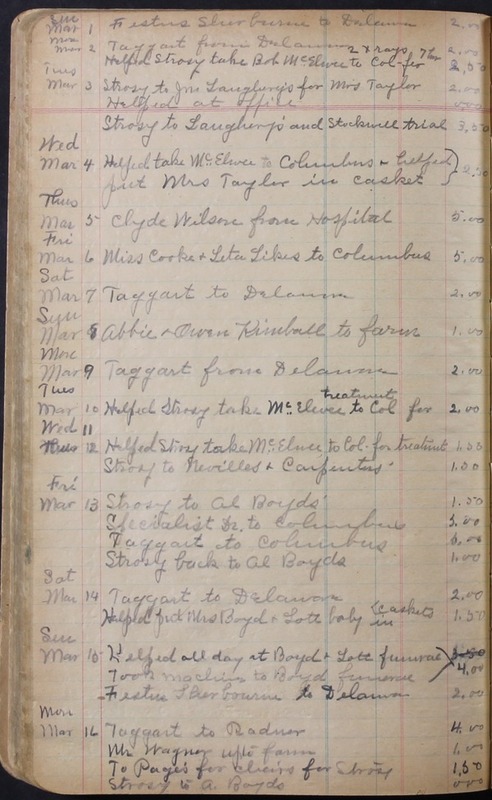 Sun
Mar 1 Festus Sherbourne to Delawn 2.00
Mon
Mar 2 Taggart from Delawn 2.00
Helped Strosy take Bob McElwee to Col-for 2 x rays 2,50
Tues
Mar 3 Strosy to Jno Laughery's for Mrs Taylor 2.00
Helped at office 000
Strosy to Laughery's and Stockwell trial 3,50
Wed
Mar 4 Helped take McElwee to Columbus & helped
put Mrs Taylor in casket 2.50
Thurs
Mar 5 Clyde Wilson from Hospital 5.00
Fri
Mar 6 Miss Cooke & Leta Likes to Columbus 5.00
Sat
Mar 7 Taggart to Delawn 2.00
Sun
Mar 8 Abbie & Owen Kimball to farm 1.00
Mon
Mar 9 Taggart from Delawn 2.00
Tues
Mar 10 Helped Strosy take McElwee to Col for treatment 2.00
Wed 11
Thurs 12 Helped Strosy take McElwee to Col-for treatment 1.50
Strosy to Nevilles & Carpenters' 1.50
Fri
Mar 13 Strosy to Al Boyds' 1.50
Specialist Dr. to Columbus 5.00
Taggart to Columbus 6.00
Strosy back to Al Boyds 1.00
Sat
Mar 14 Taggart to Delawn 2.00
Helped put Mrs Boyd & Lott baby in caskets 1.50
Sun
Mar 15 Helped all day at Boyd & Lott funerae 3.50
Took machine to Boyd funerae 4.00
Festus Sherbourne to Delawn 2.00
Mon
Mar 16 Taggart to Radner 4.00
Mr Wagner upto farm 1.00
To Pages for chairs for Strosy 1,50
Strosy to A. Boyds 000